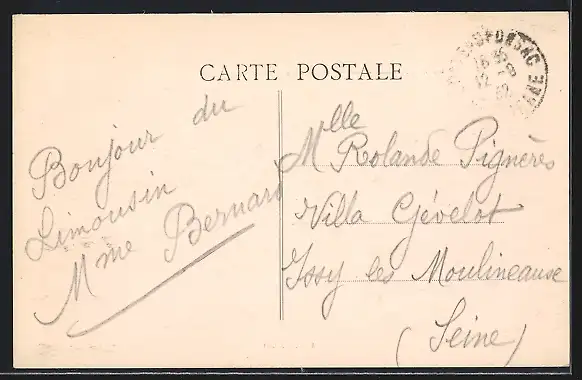 CARTE POSTALE
Bonjour du
Limousin
Mme Bernard
Mlle Rolande Pignères
Villa Gévelot
Issy les Moulineause
(Seine)